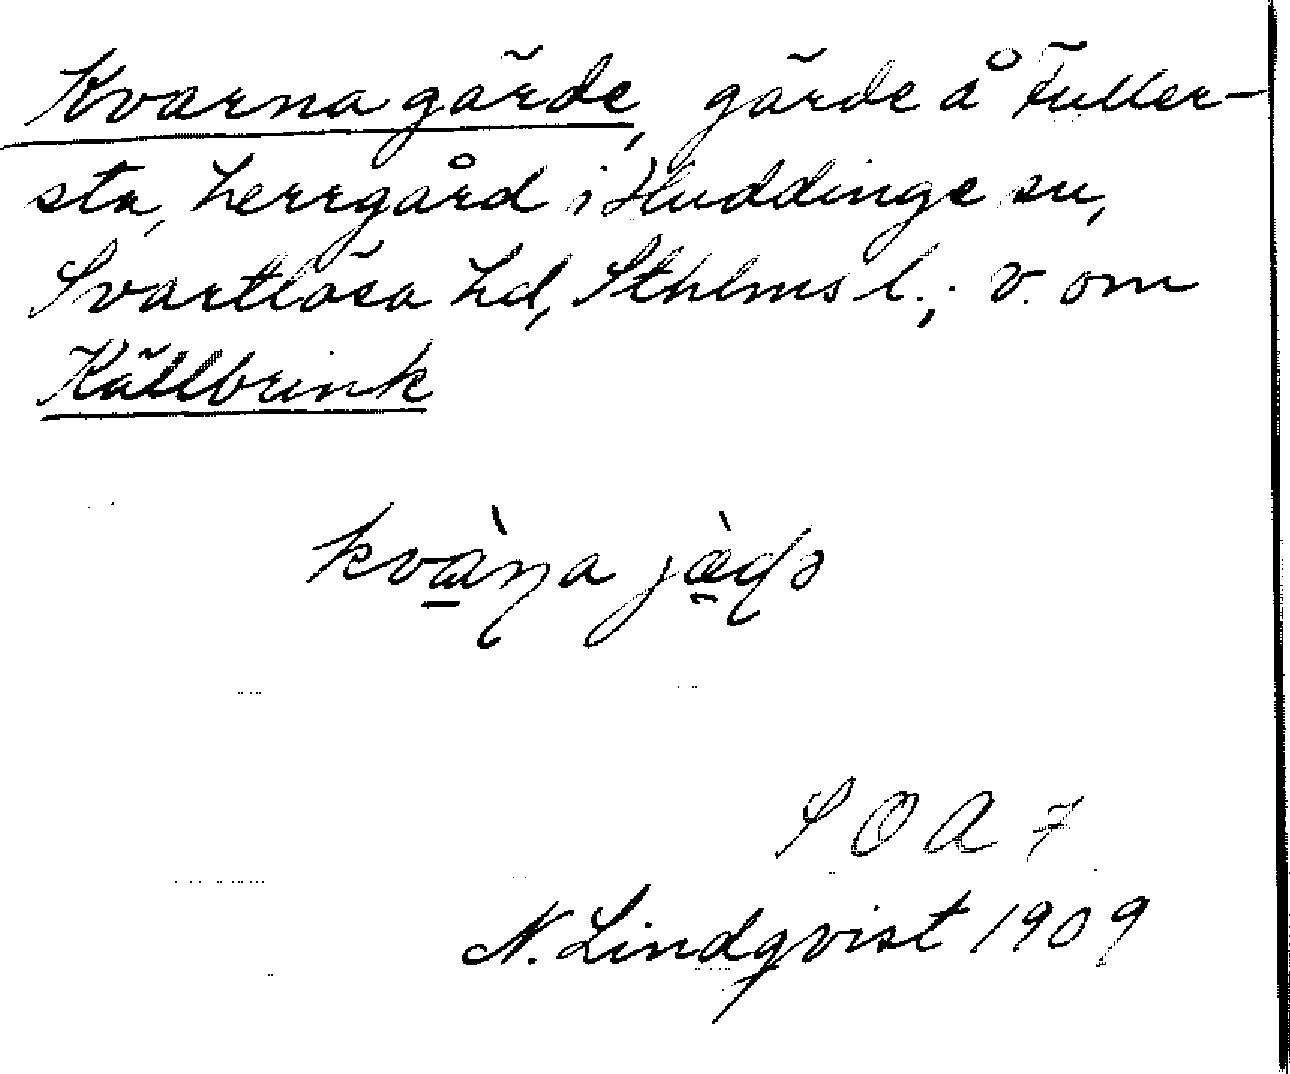 Kvarnagärde, gärde å Fuller-
sta, herrgård i Huddinge sn,
Svartlösa hd, Sthlms l.; v. om
Källbrink
kvàɳa jæ̀ɖə
SOA 7
N. Lindqvist 1909